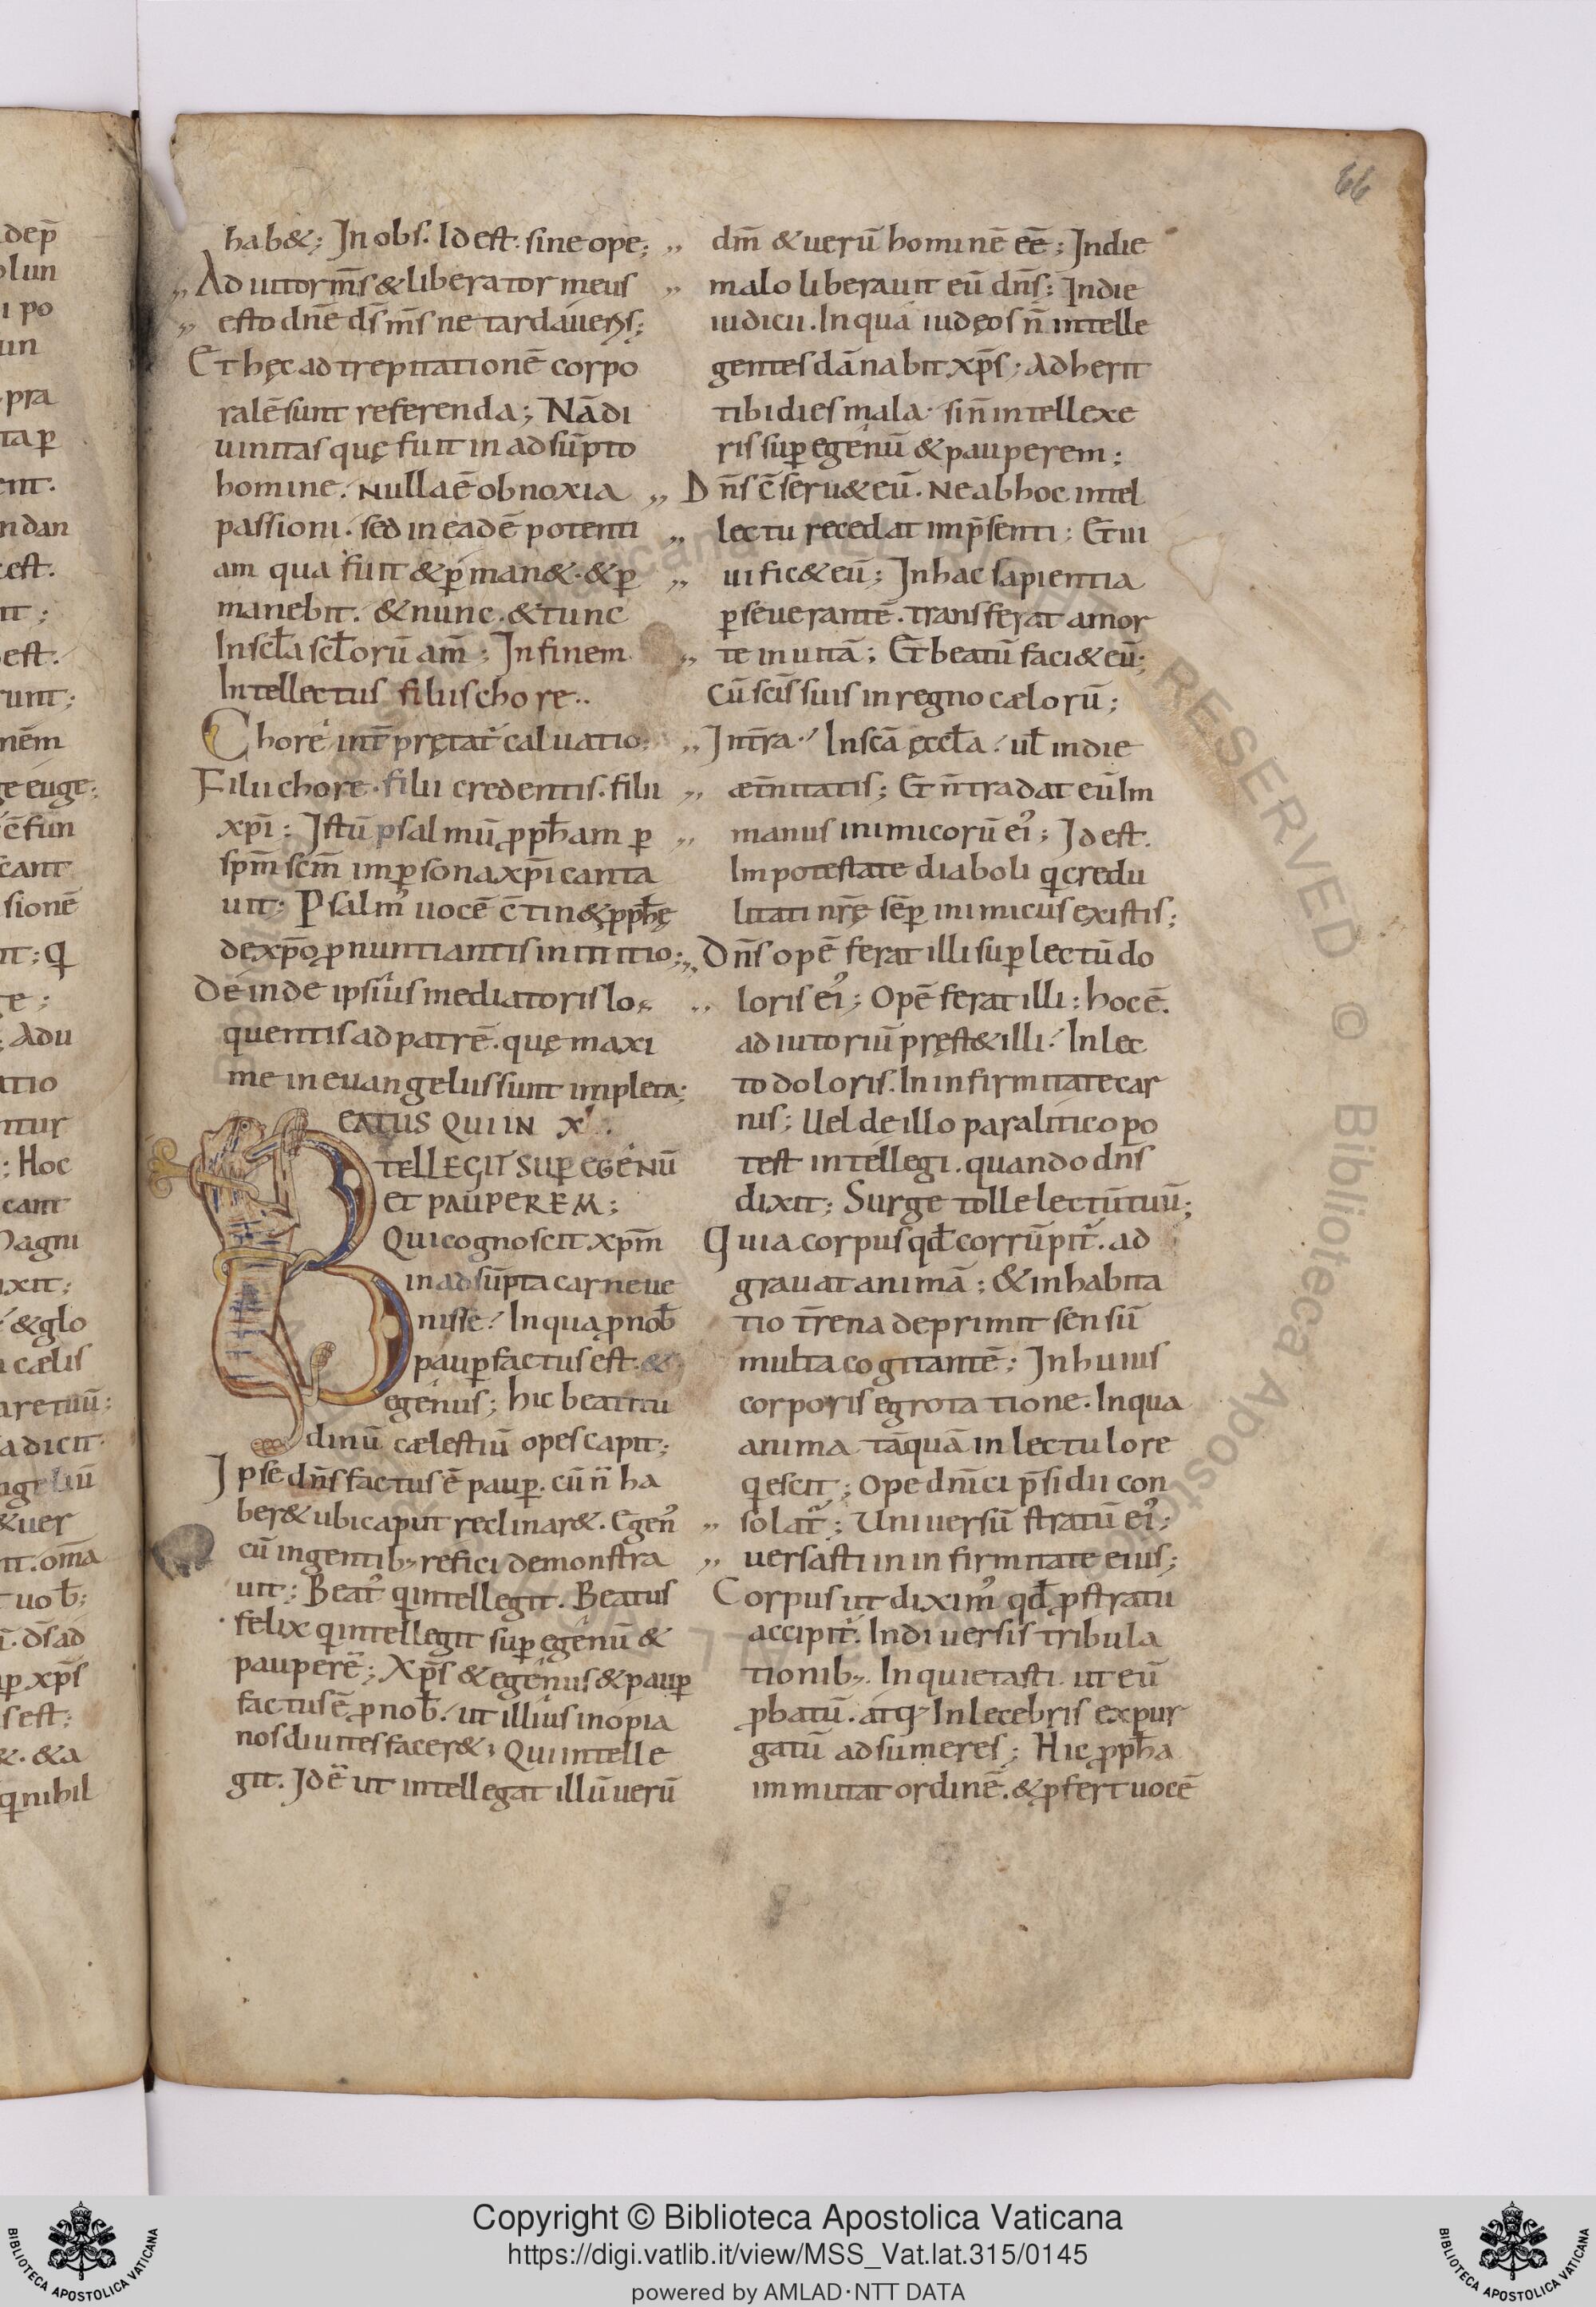 66
hab&; In obs. Id est. sine ope;
Adiutor m̄s & liberator meus
esto dn̄e ds̄ m̄s ne tardaueris;
Et hęc ad trepitationē corpo
ralē sunt referenda; Nā di
uinitas quę fuit in adsūpto
homine. Nulla ē obnoxia
passioni. sed in eadē potenti
am qua fuit & ꝑman&. & ꝑ
manebit. & nunc. & tunc
In scl̄a scl̄orū am̄; In finem
Intellectus filiis chore..
Chore int̄prętat̄ caluatio.
Filii chore. filii credentis. filii
xp̄i; Istū psalmū ꝓph̄am ꝑ
sp̄m sc̄m in ꝑsona xp̄i canta
uit; Psalm᾽ uocē c̄tin& ꝓph̄ę
de xp̄o ꝓnuntiantis in initio;
Deinde ipsius mediatoris lo
quentis ad patrē. quę maxi
me in euangeliis sunt impleta;
BEATUS QUI IN XL.
TELLEGIT SUꝑ EGENŪ
ET PAUPEREM;
Qui cognoscit xp̄m
in adsūpta carne ue
nisse. In qua ꝓ nob̄
pauꝑ factus est. &
egenus; hic beatitu
dinū cælestiū opes capit;
Ipse dn̄s factus ē pauꝑ. cū n̄ ha
ber& ubi caput reclinar&. Egen᾽
cū in gentib; refici demonstra
uit; Beat᾽ q̇ intellegit. Beatus
felix q̇ intellegit suꝑ egenū &
pauperē; Xp̄s & egenus & pauꝑ
factus ē ꝓ nob̄. ut illius inopia
nos diuites facer&; Qui intelle
git. Id ē ut intellegat illū uerū
dm̄ & uerū hominē eē; In die
malo liberauit eū dn̄s; In die
iudicii. In qua iudęos n̄ intelle
gentes dānabit xp̄s; Adherit
tibi dies mala. si n̄ intellexe
ris suꝑ egenū & pauperem;
Dn̄s c̄seru& eū. Ne ab hoc intel
lectu recedat in p̄senti; Et ui
uific& eū; In hac sapientia
ꝑseuerantē. transferat a mor
te in uitā; Et beatū faci& eū;
Cū sc̄is suis in regno cælorū;
In t̄ra. In sc̄a ęccl̄a. ul̄ in die
æt̄nitatis; Et n̄ tradat eū Im
manus inimicorū ei᾽; Id est.
Im potestate diaboli q̇ credu
litati nr̄ę sēꝑ inimicus existis;
Dn̄s opē ferat illi suꝑ lectū do
loris ei᾽; Opē ferat illi: hoc ē.
adiutoriū pręst& illi. In lec
to doloris. In infirmitate car
nis; Uel de illo paralitico po
test intellegi. quando dn̄s
dixit; Surge tolle lectū tuū;
Quia corpus qd̄ corrūpit̄. ad
grauat animā; & inhabita
tio t̄rena deprimit sensū
multa cogitantē; In huius
corporis egrotatione. In qua
anima tāquā in lectulo re
q̇escit; Ope dn̄ici p̄sidii con
solat̄; Uniuersū stratū ei᾽;
uersasti in infirmitate eius;
Corpus ut dixim᾽ qd̄ ꝓ stratu
accipit̄. In diuersis tribula
tionib;. Inquietasti. ut eū
ꝓbatū. atq; Inlecebris expur
gatū adsumeres; Hic ꝓph̄a
immutat ordinē. & ꝓfert uocē
Copyright © Biblioteca Apostolica Vaticana
https://digi.vatlib.it/view/MSS_Vat.lat.315/0145
powered by AMLAD·NTT DATA